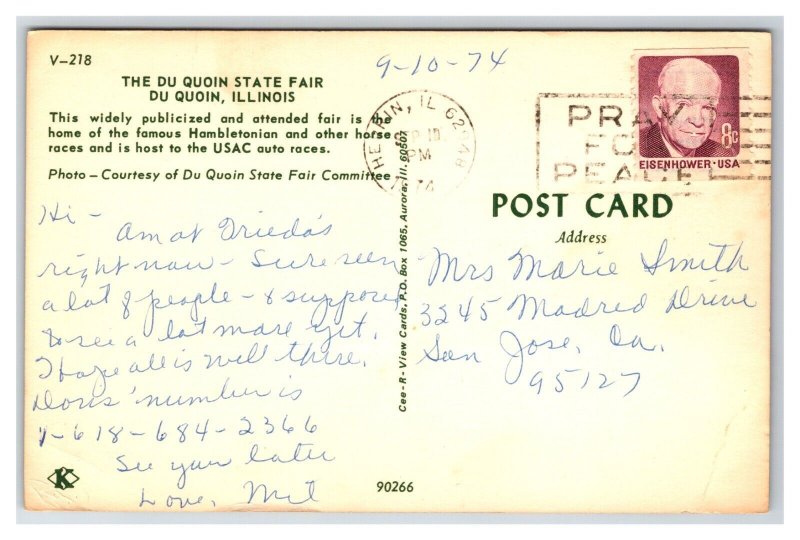 V-218
THE DU QUOIN STATE FAIR
DU QUOIN, ILLINOIS
This widely publicized and attended fair is the
home of the famous Hambletonian and other horse
races and is host to the USAC auto races.
Photo - Courtesy of Du Quoin State Fair Committee
Hi -
Am at Frieda's
right now - Sure seen
a lot of people - & suppose
to see a lot more yet.
I hope all is well there.
Doris' number is
1-618-684-2366
See you later
Love,
K
9-10-74
HERRIN, IL 62948
PM
74
PRAY
FOR
PEACE
8c
EISENHOWER·USA
Cee-R-View Cards, P.O. Box 1065, Aurora, Ill. 60507
POST CARD
Address
Mrs Marie Smith
3245 Madred Drive
San Jose, Ca.
95127
90266